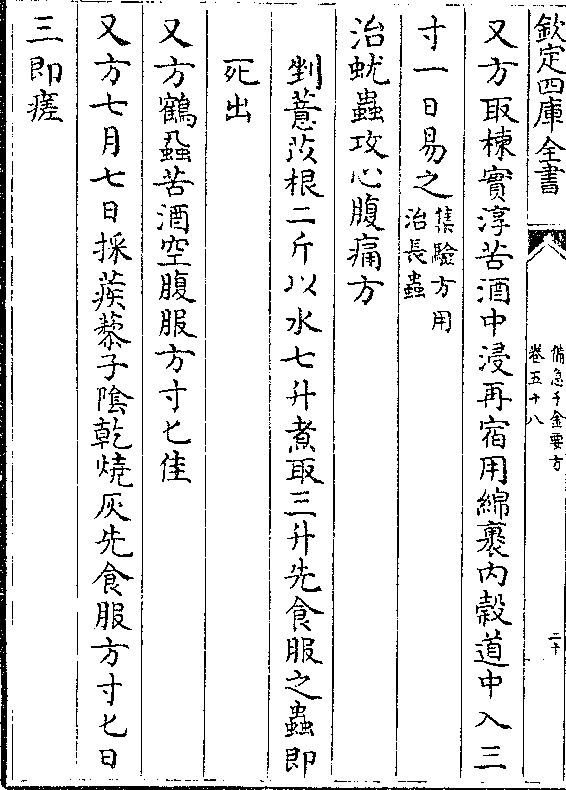 欽定四庫全書
備急千金要方
卷五十八
二十
又方取楝實淳苦酒中浸再宿用綿裹内榖道中入三
寸一日易之集驗方用
治長蟲
治蚘蟲攻心腹痛方
剉薏苡根二斤以水七升煮取三升先食服之蟲即
死出
又方鶴蝨苦酒空腹服方寸匕佳
又方七月七日採蒺藜子陰乾燒灰先食服方寸匕日
三即瘥